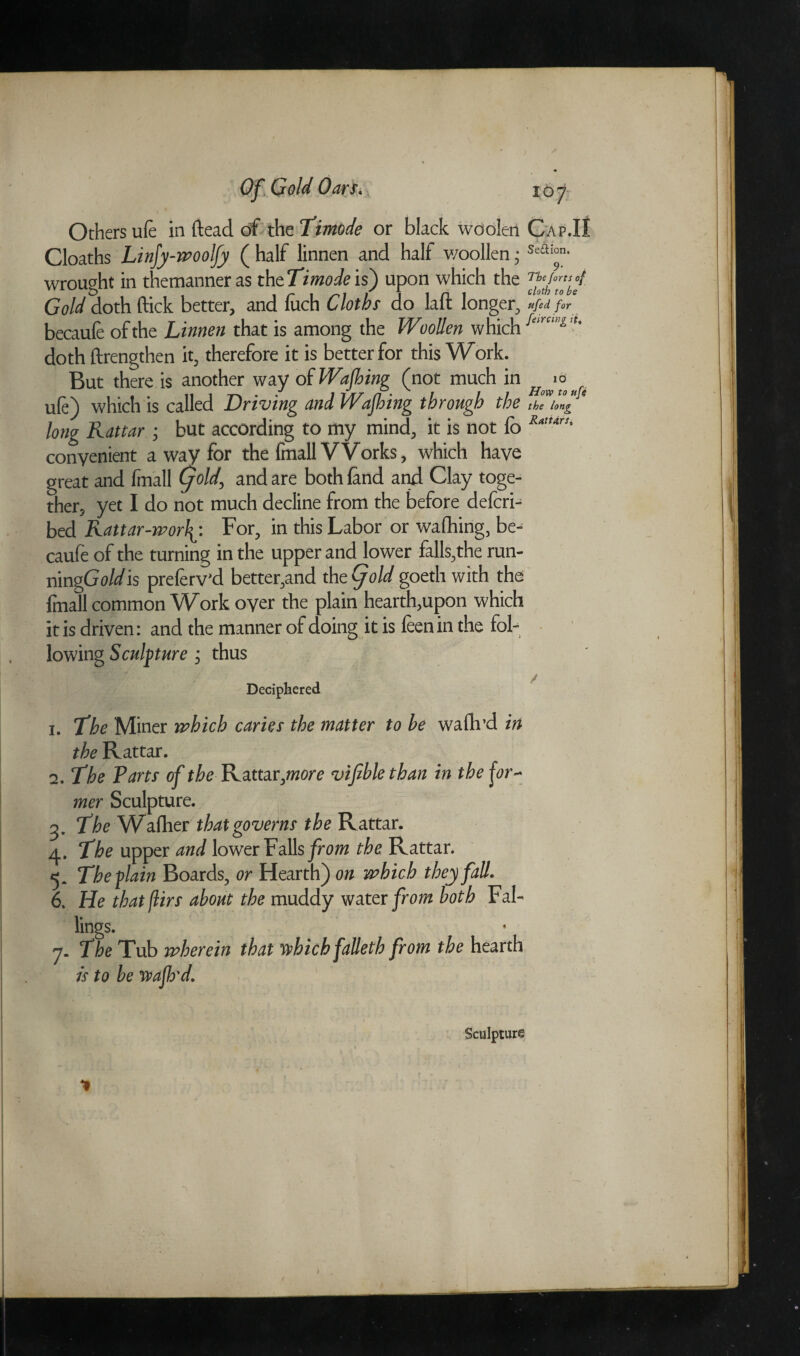 Of Gold Oars. 107
Others uſe in ſtead of the Timode or black woolen Cap.II
Cloaths Linſy-woolſy (half linnen and half woollen; Section.
9.
wrought in themanner as the Timode is) upon which the The ſorts of
Gold doth ſtick better, and ſuch Cloths do laſt longer, cloth to be
uſed for
becauſe of the Linnen that is among the Woollen which ſeircing it.
doth ſtrengthen it, therefore it is better for this Work.
But there is another way of Waſhing (not much in 10
uſe) which is called Driving and Waſhing through the How to uſe
the long
long Rattar ; but according to my mind, it is not ſo Rattars.
convenient a way for the ſmall VVorks, which have
great and ſmall Gold, and are both ſand and Clay toge-
ther, yet I do not much decline from the before deſcri-
bed Rattar-work: For, in this Labor or waſhing, be-
cauſe of the turning in the upper and lower falls,the run-
ningGold is preſerv'd better,and the Gold goeth with the
ſmall common Work over the plain hearth,upon which
it is driven: and the manner of doing it is ſeen in the fol-
lowing Sculpture ; thus
Deciphered
1. The Miner which caries the matter to be waſh'd in
the Rattar.
2. The Parts of the Rattar,more viſible than in the for-
mer Sculpture.
3. The Waſher that governs the Rattar.
4. The upper and lower Falls from the Rattar.
5. The plain Boards, or Hearth) on which they fall.
6. He that ſtirs about the muddy water from both Fal-
lings.
7. The Tub wherein that which falleth from the hearth
is to be waſh'd.
Sculpture